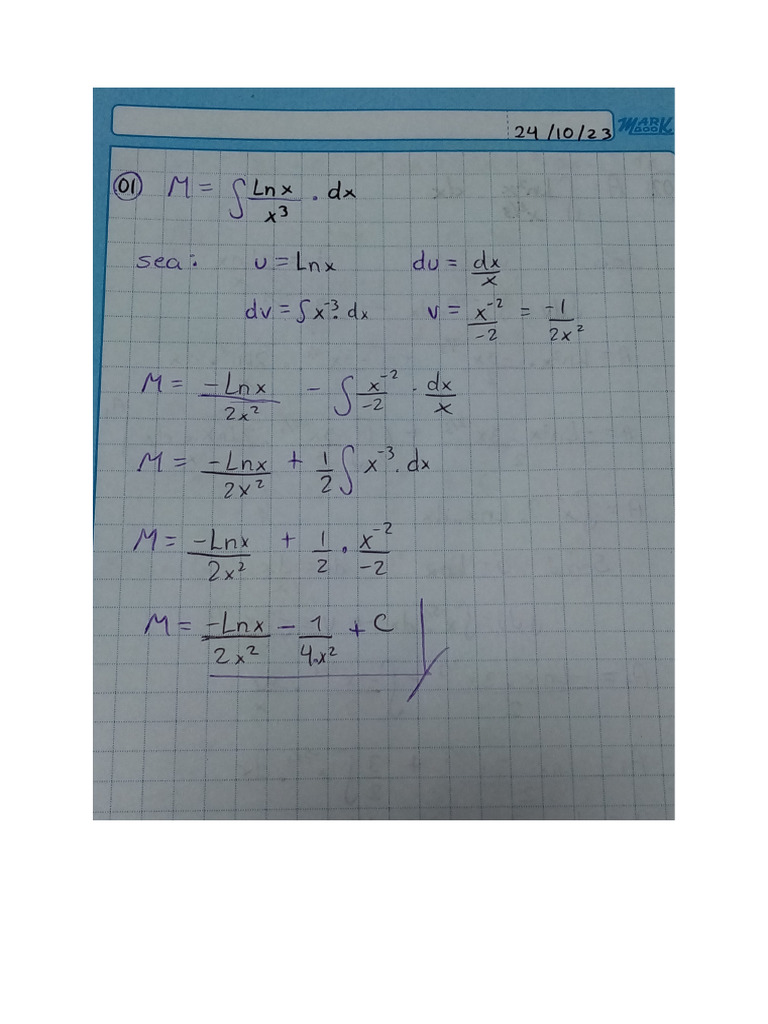 24/10/23 MARK BOOK
01 M = ∫ Lnx/x³ . dx
sea: u = Lnx du = dx/x
dv = ∫ x⁻³. dx v = x⁻²/-2 = -1/2x²
M = -Lnx/2x² - ∫ x⁻²/-2 . dx/x
M = -Lnx/2x² + 1/2 ∫ x⁻³ . dx
M = -Lnx/2x² + 1/2 . x⁻²/-2
M = -Lnx/2x² - 1/4.x² + C